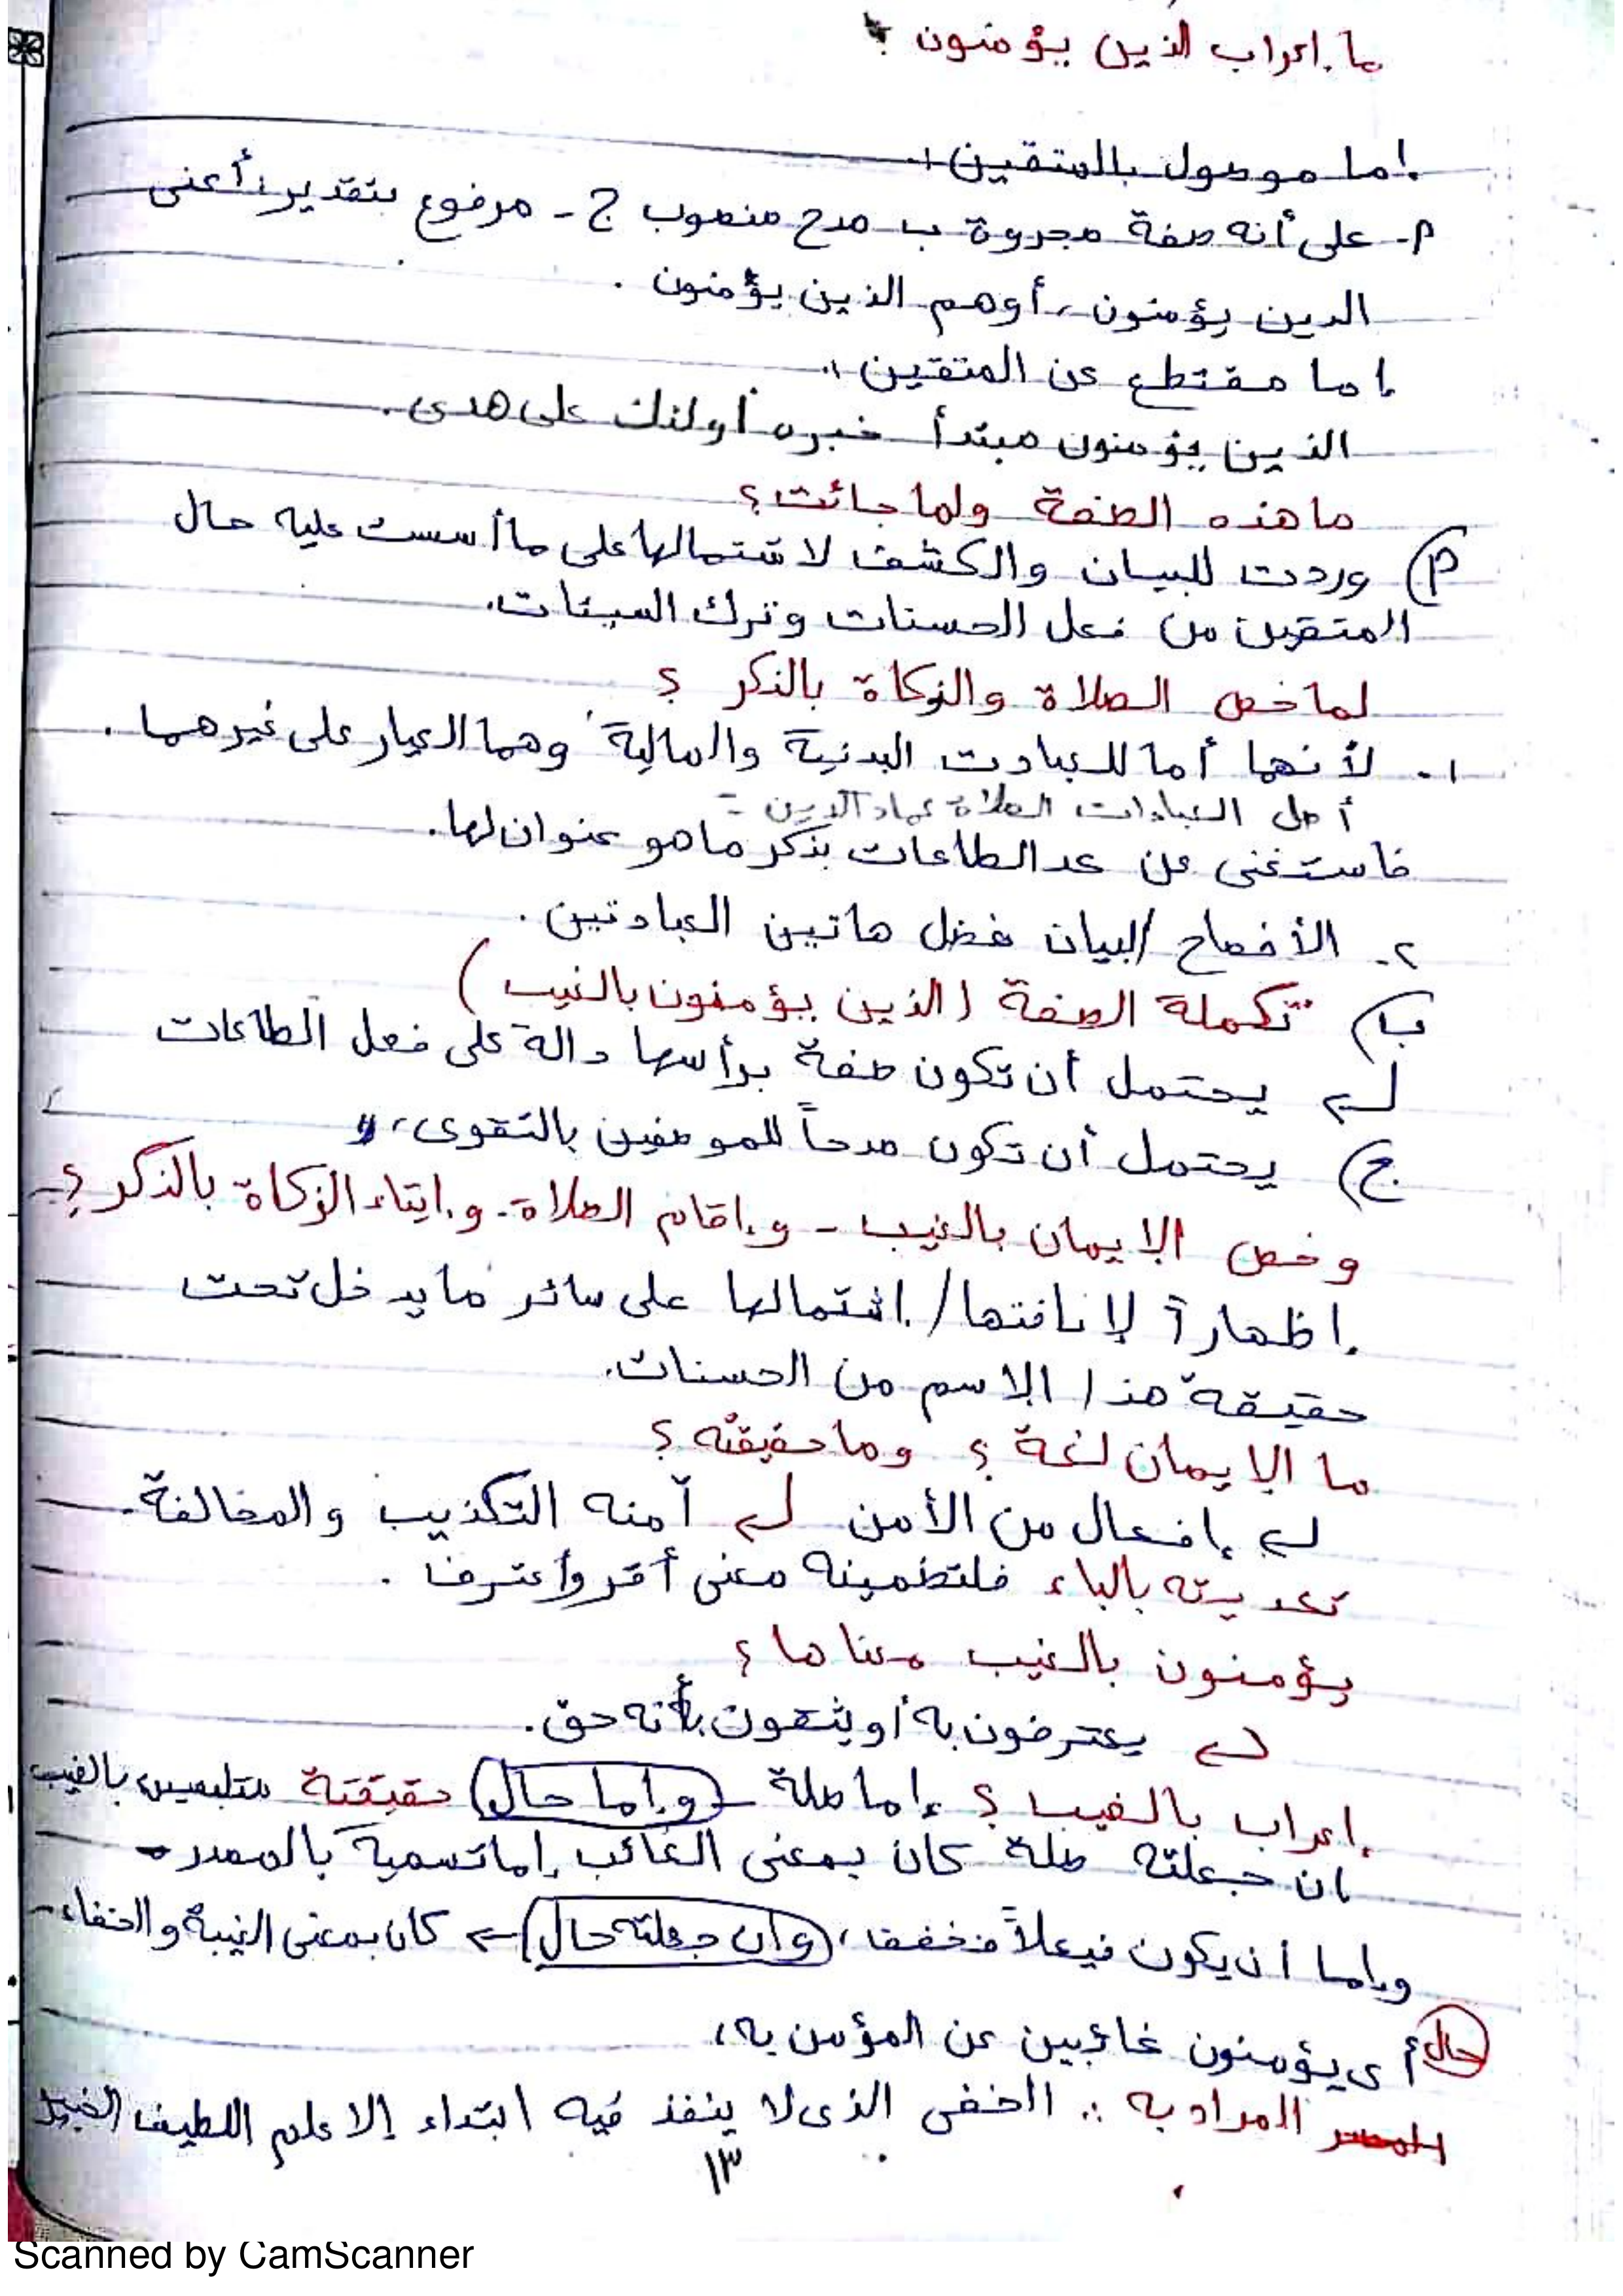 ما إعراب الذين يؤمنون ؟
إما موصول بالمتقين :
أ- على أنه صفة مجروة ب- مدح منصوب ج- مرفوع بتقدير: أعنى
الذين يؤمنون، أوهم الذين يؤمنون .
إما مقتطع عن المتقين :
الذين يؤمنون مبتدأ خبره أولئك على هدى .
ما هذه الصفة ولما جائت؟
أ) وردت للبيان والكشف لاشتمالها على ما أسست عليه حال
المتقين من فعل الحسنات وترك السيئات.
لما خص الصلاة والزكاة بالذكر ؟
١- لأنهما أما للعبادت البدنية والمالية وهما العيار على غيرهما .
أصل العبادات الصلاة عماد الدين =
فاستغنى عن عد الطاعات بذكر ما هو عنوان لها.
٢- الأفصاح /البيان فضل هاتين العبادتين .
ب) تكملة الصفة (الذين يؤمنون بالغيب)
يحتمل أن تكون صفة برأسها دالة على فعل الطاعات
ج) يحتمل أن تكون مدحاً للموصفين بالتقوى،
وخص الإيمان بالغيب - وإقام الصلاة - وإيتاء الزكاة بالذكر ؟
إظهاراً لإنافتها / إشتمالها على سائر ما يدخل تحت
حقيقة هذا الاسم من الحسنات.
ما الإيمان لغة ؟ وما حقيقته ؟
إفعال من الأمن آمنه التكذيب والمخالفة.
تعديته بالباء فلتضمينه معنى أقر وأعترف .
يؤمنون بالغيب معناها ؟
يعترفون به أو يثقون بأنه حق.
إعراب بالغيب ؟ إما صلة - وإما حال حقيقتة متلبسين بالغيب
إن جعلته صلة كان بمعنى الغائب إما تسمية بالمصدر -
وإما أن يكون فيعلاً فخفف، وإن جعلته حال ← كان بمعنى الغيبة والخفاء -
حال أى يؤمنون غائبين عن المؤمن به،
المراد به :. الخفى الذى لا ينفذ فيه ابتداء إلا علم اللطيف الخبير
١٣
Scanned by CamScanner